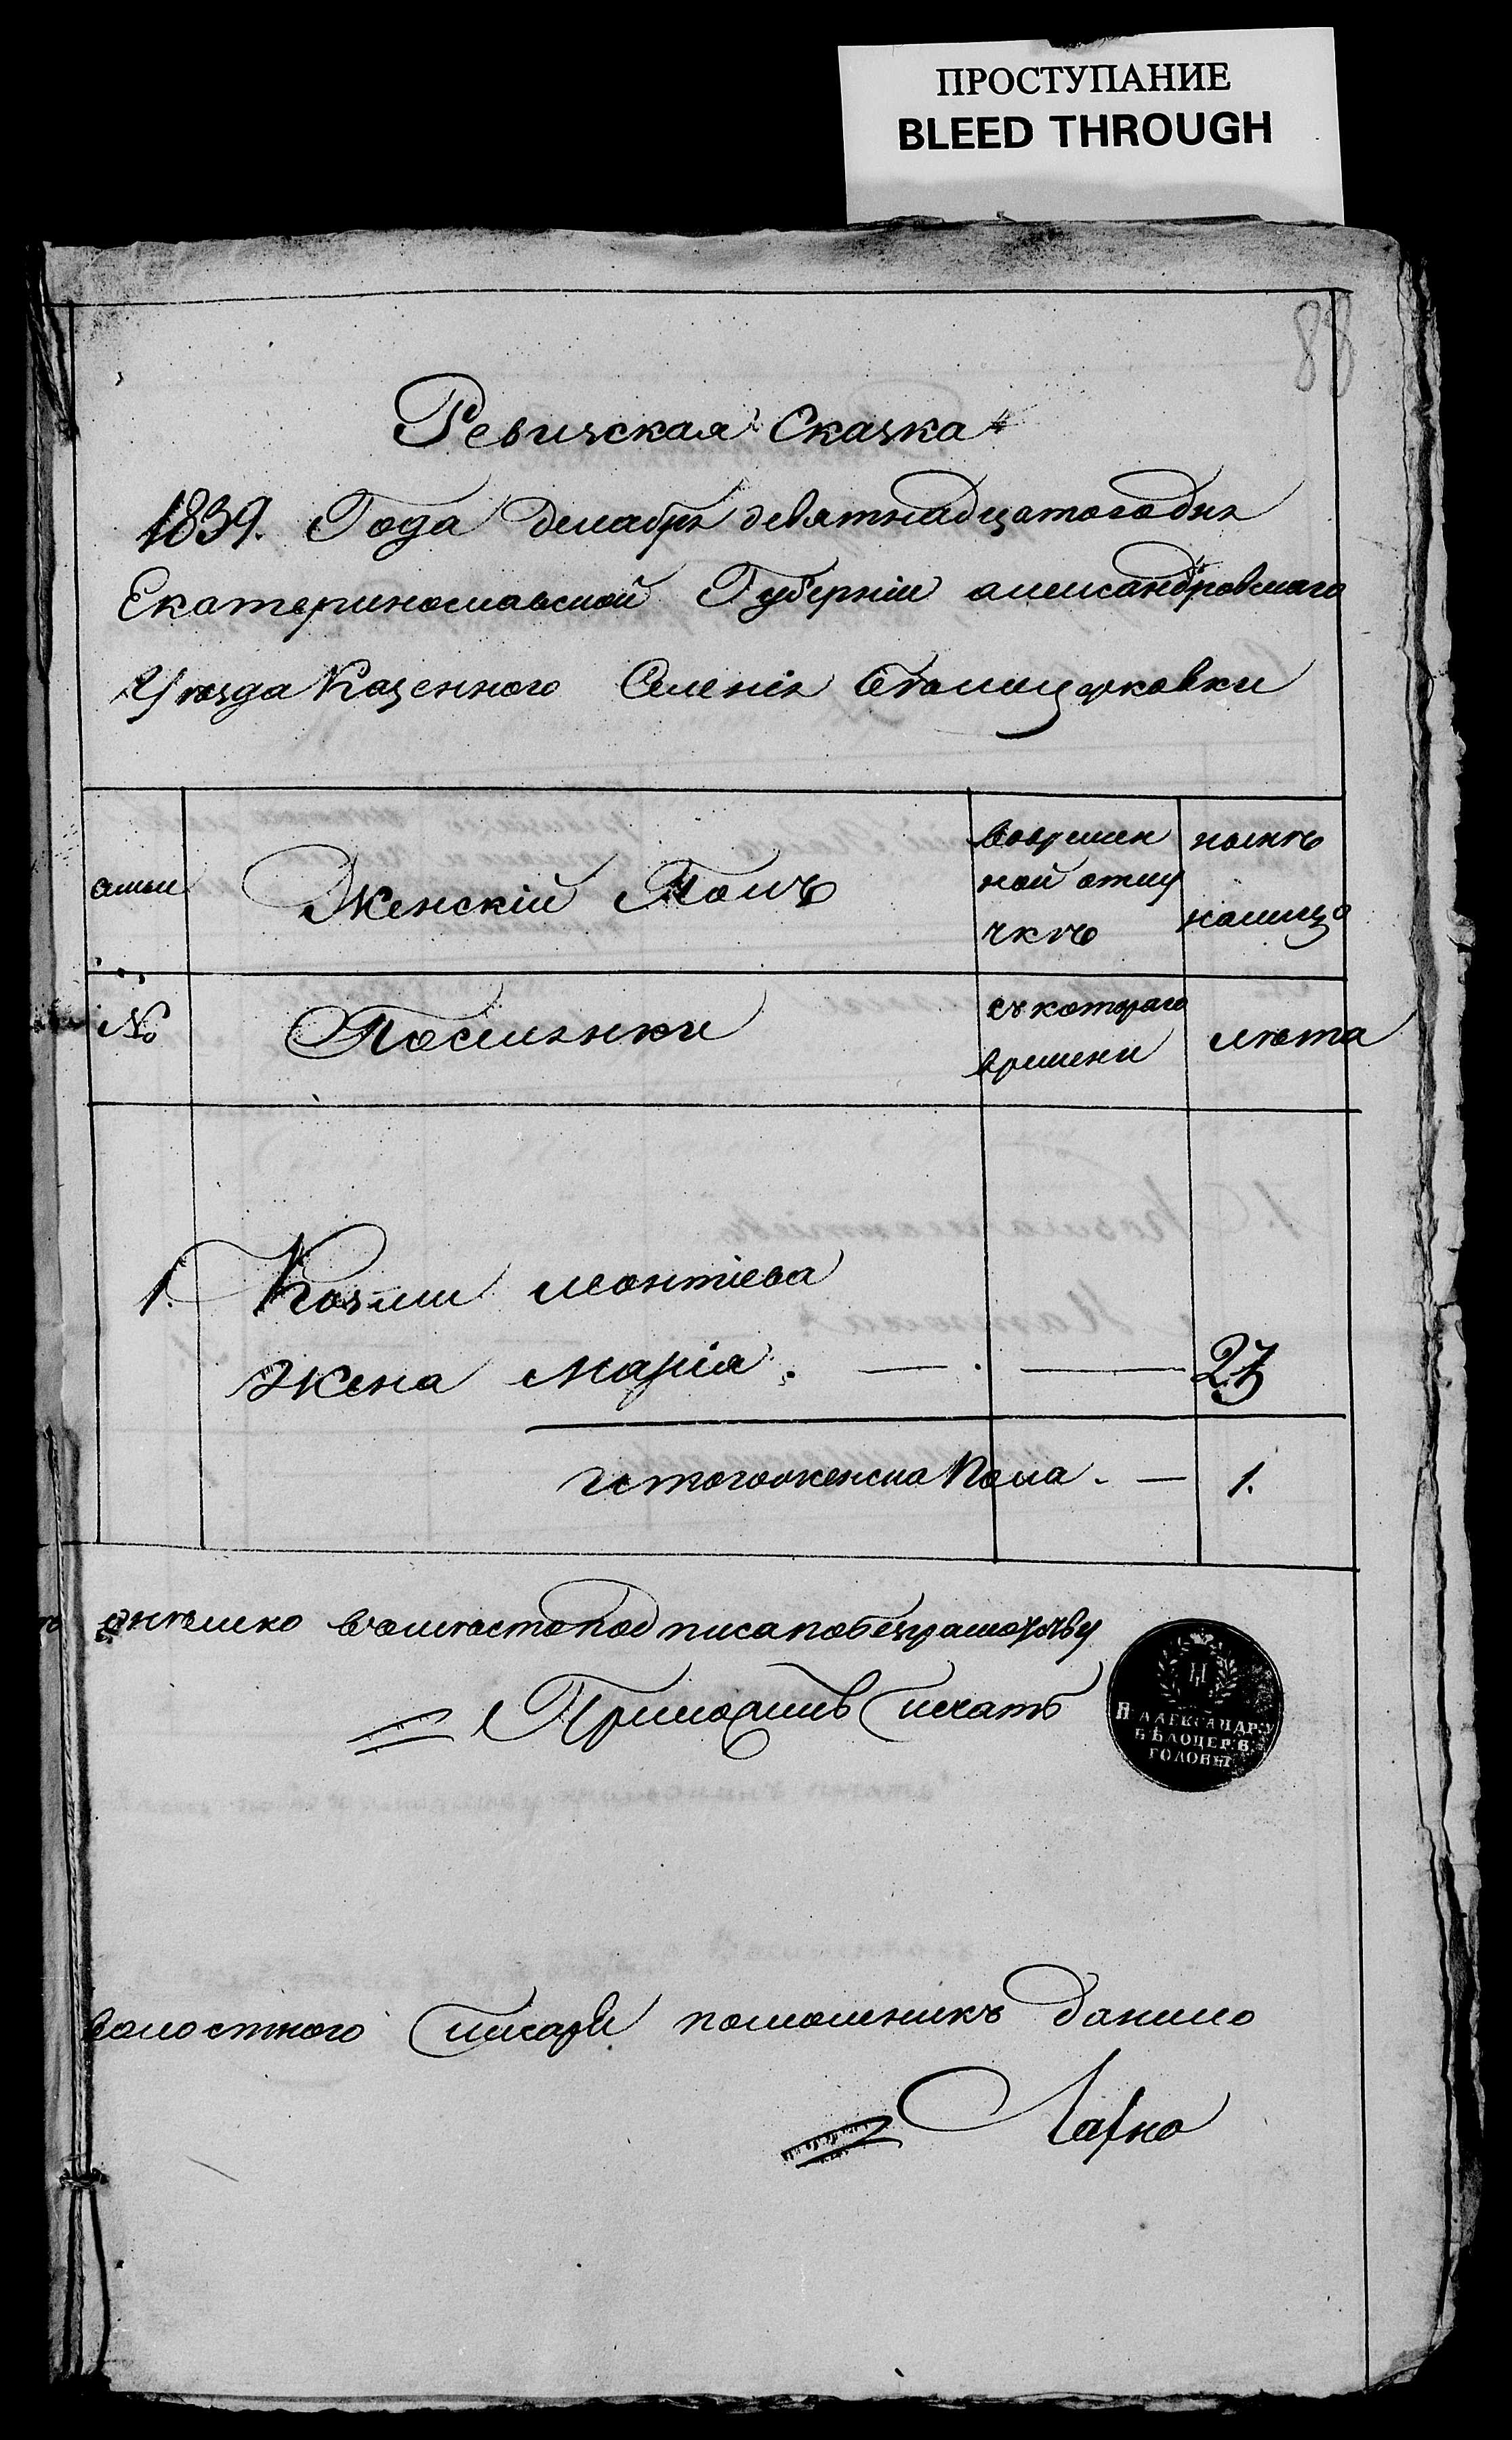 ПРОСТУПАНИЕ
BLEED THROUGH
88
Ревизская Сказка
1839. Года декабря девятнадцатого дня
Екатеринославской Губернiи александровскаго
Уѣзда Казенного Селенiя бѣлоцерковки
семьи
Женскiй Полъ
вовремен
ной отлу
чкѣ
нынѣ
налицо
№
Поселянки
съ котораго
времени
лѣта
1. Козмы леонтiева
жена марiя. — . — 27
итого женска Пола. — 1.
вомѣсто подписа по безграмотству
Приложилъ печать
П АЛЕКСАНДР: У
БѢЛОЦЕР: В.
ГОЛОВЫ
волостного писаря помошникъ данило